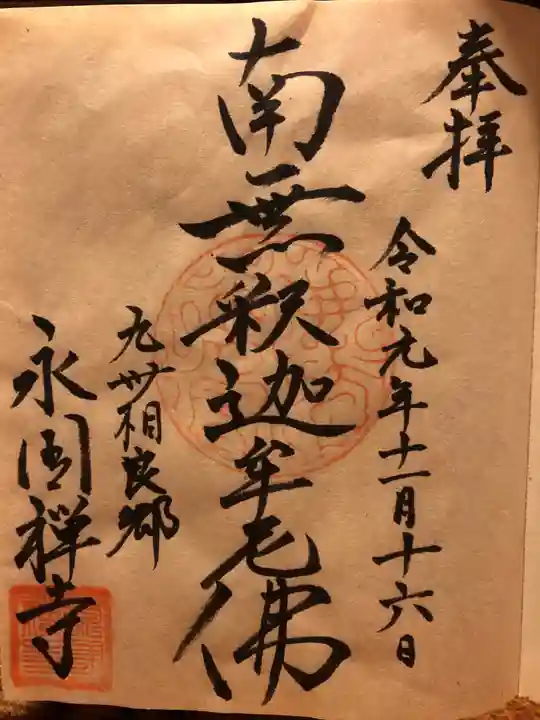 奉拝
令和元年十一月十六日
南無釈迦牟尼佛
九州相良郷
永国禅寺